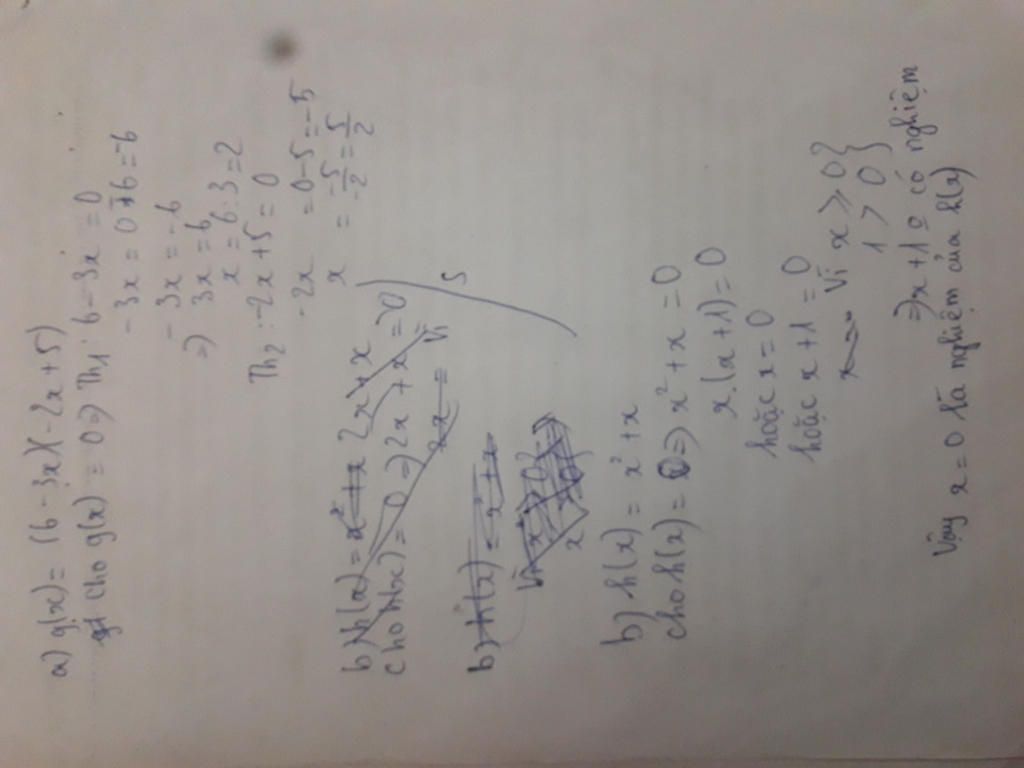 a) g(x) = (6 - 3x)(-2x + 5)
Cho g(x) = 0 => Th1: 6 - 3x = 0
- 3x = 0 - 6 = -6
- 3x = -6
=) 3x = 6
x = 6 : 3 = 2
Th2: -2x + 5 = 0
- 2x = 0 - 5 = -5
x = -5/-2 = 5/2
b) h(x) = x² + x 2x + x
Cho h(x) = 0 => 2x + x = 0
3x = Vì
S
b) h(x) = x² + x
Vì x² ≥ 0
b) h(x) = x² + x
cho h(x) = 0 => x² + x = 0
x.(x + 1) = 0
hoặc x = 0
hoặc x + 1 = 0
x Vì x ≥ 0 }
1 > 0 }
=) x + 1 có nghiệm
Vậy x = 0 là nghiệm của h(x)